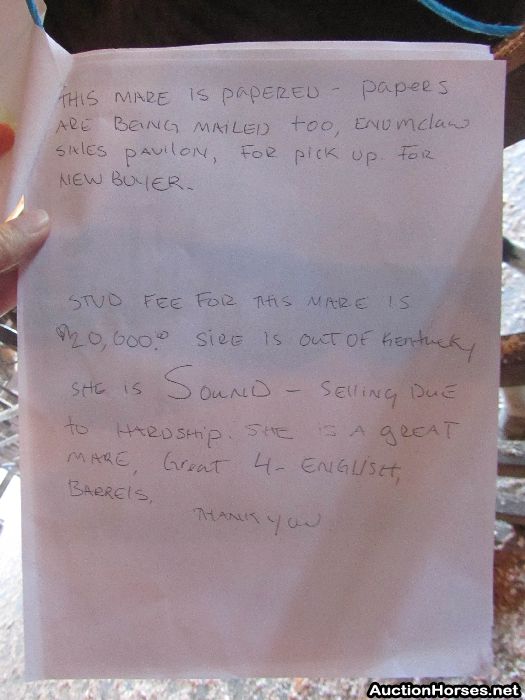 THIS MARE IS PAPERED - PAPERS
ARE BEING MAILED TOO, ENUMCLAW
SALES PAVILON, FOR PICK UP FOR
NEW BUYER.
STUD FEE FOR THIS MARE IS
$20,000.00 SIRE IS OUT OF Kentucky
SHE IS SOUND - SELLING DUE
TO HARDSHIP. SHE IS A GREAT
MARE, Great 4- ENGLISH,
BARRELS.
THANK YOU
AuctionHorses.net